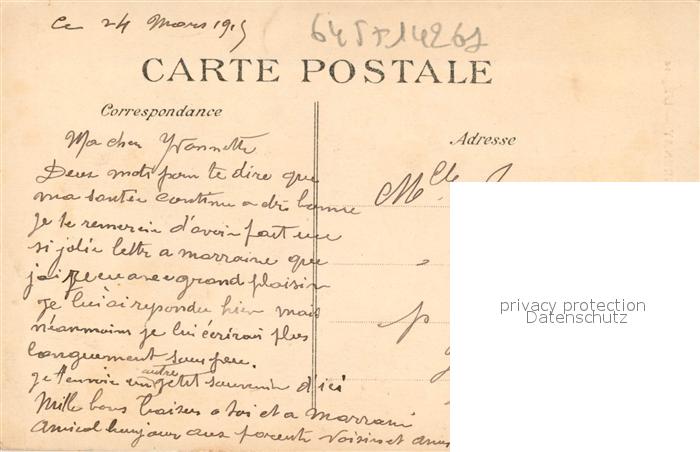 Le 24 Mars 1915
64571426
CARTE POSTALE
Correspondance
Adresse
Ma chere Yvonnette
Deux mots pour te dire que
ma santée continue a être bonne
Je te remercie d'avoir fait une
si jolie lettre a marraine que
j'ai reçu avec grand plaisir
Je lui ai repondu hier mais
néanmoins je lui écrirai plus
longuement sous peu.
Je t'envoie un autre petit souvenir d'ici
Mille bons baisers a toi et a marraine
Amical bonjour aux parents voisins et amis
Mlle
privacy protection
Datenschutz